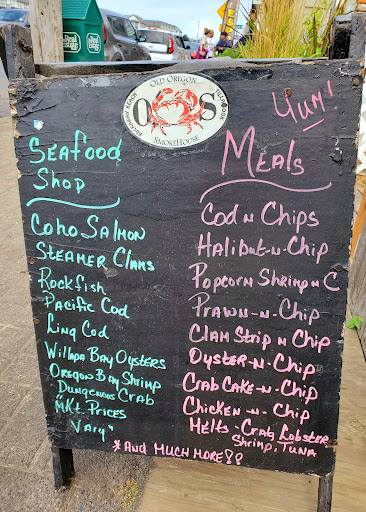 Real Estate
Real Estate
OLD OREGON
SMOKEHOUSE
ROCKAWAY BEACH
O S
Yum!
Seafood
Shop
Coho Salmon
Steamer Clams
Rockfish
Pacific Cod
Ling Cod
Willapa Bay Oysters
Oregon Bay Shrimp
Dungenous Crab
"Mkt Prices
Vary"
Meals
Cod n Chips
Halibut-n-Chip
Popcorn Shrimp n C
Prawn-n-Chip
Clam Strip n Chip
Oyster-n-Chip
Crab Cake-n-Chip
Chicken-n-Chip
Melts-Crab, Lobster
Shrimp, Tuna
*And MUCH MORE!!